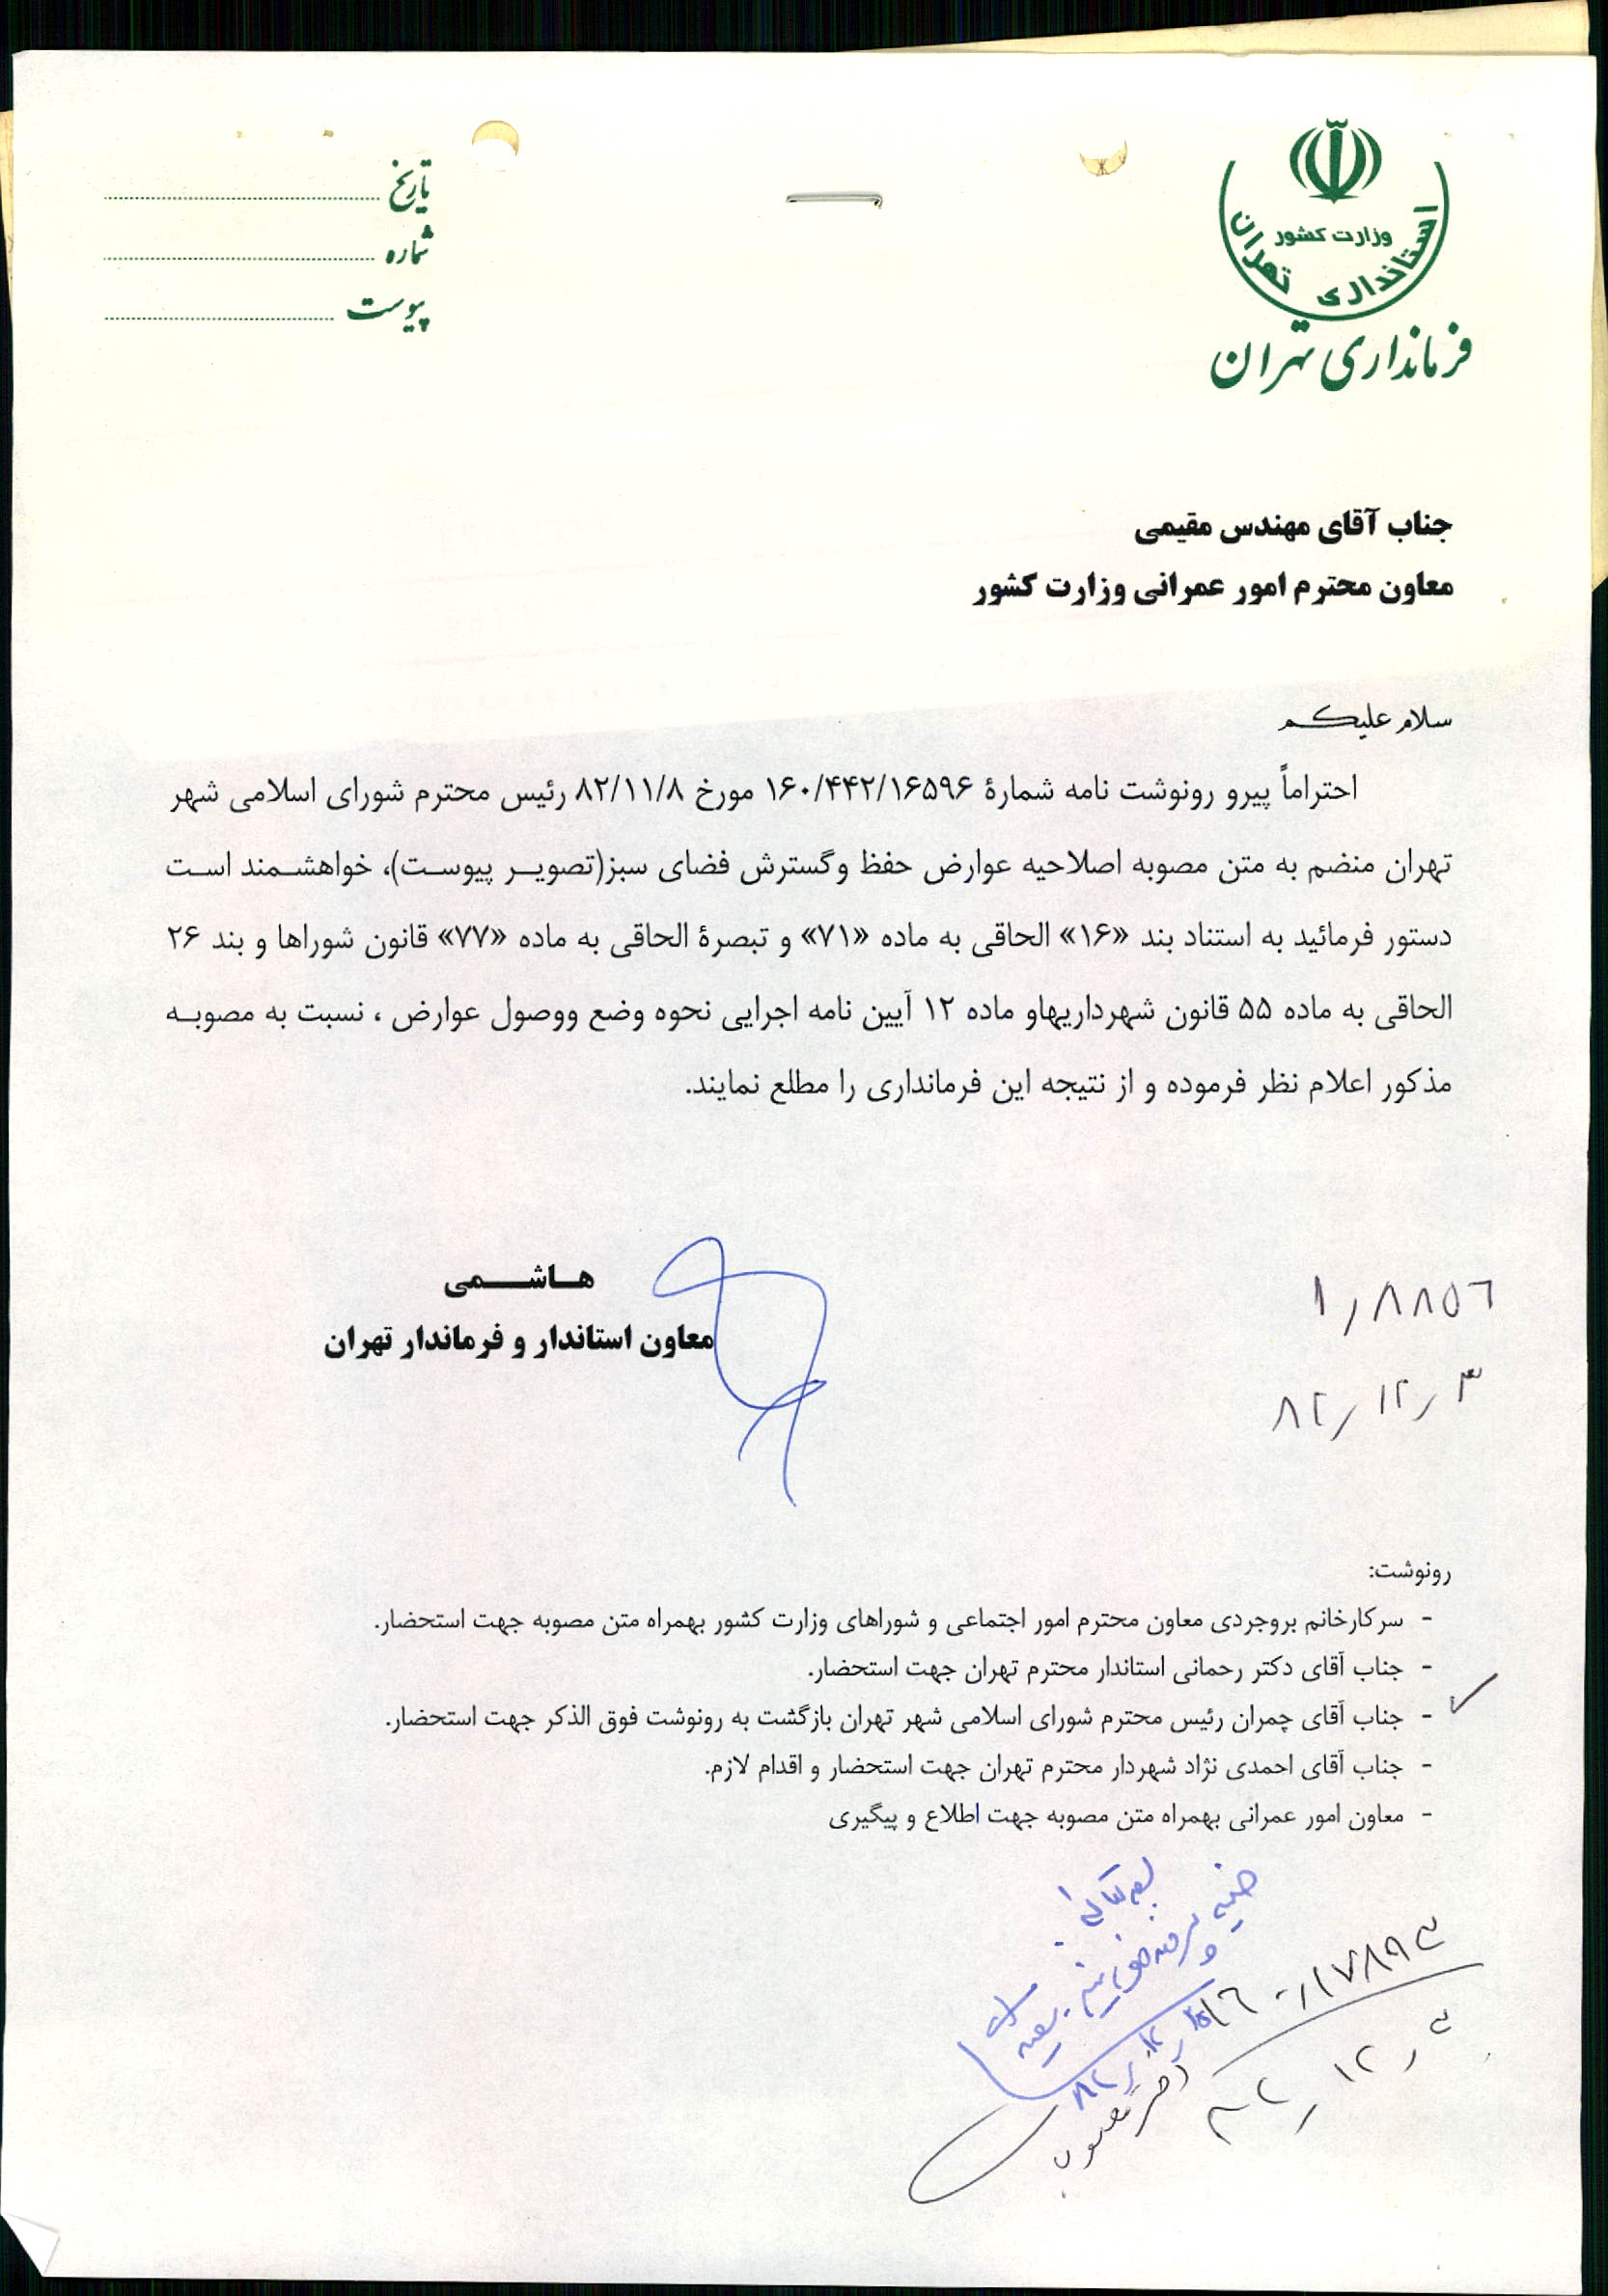 وزارت کشور
استانداری تهران
فرمانداری تهران
تاریخ
شماره
پیوست
جناب آقای مهندس مقیمی
معاون محترم امور عمرانی وزارت کشور
سلام علیکم
احتراماً پیرو رونوشت نامه شمارهٔ ۱۶۰/۴۴۲/۱۶۵۹۶ مورخ ۸۲/۱۱/۸ رئیس محترم شورای اسلامی شهر
تهران منضم به متن مصوبه اصلاحیه عوارض حفظ وگسترش فضای سبز(تصویر پیوست)، خواهشمند است
دستور فرمائید به استناد بند «۱۶» الحاقی به ماده «۷۱» و تبصرهٔ الحاقی به ماده «۷۷» قانون شوراها و بند ۲۶
الحاقی به ماده ۵۵ قانون شهرداریهاو ماده ۱۲ آیین نامه اجرایی نحوه وضع ووصول عوارض ، نسبت به مصوبه
مذکور اعلام نظر فرموده و از نتیجه این فرمانداری را مطلع نمایند.
هاشمی
معاون استاندار و فرماندار تهران
۱٫۸۸۵۶
۸۲٫۱۲٫۳
رونوشت:
- سرکارخانم بروجردی معاون محترم امور اجتماعی و شوراهای وزارت کشور بهمراه متن مصوبه جهت استحضار.
- جناب آقای دکتر رحمانی استاندار محترم تهران جهت استحضار.
- جناب آقای چمران رئیس محترم شورای اسلامی شهر تهران بازگشت به رونوشت فوق الذکر جهت استحضار.
- جناب آقای احمدی نژاد شهردار محترم تهران جهت استحضار و اقدام لازم.
- معاون امور عمرانی بهمراه متن مصوبه جهت اطلاع و پیگیری